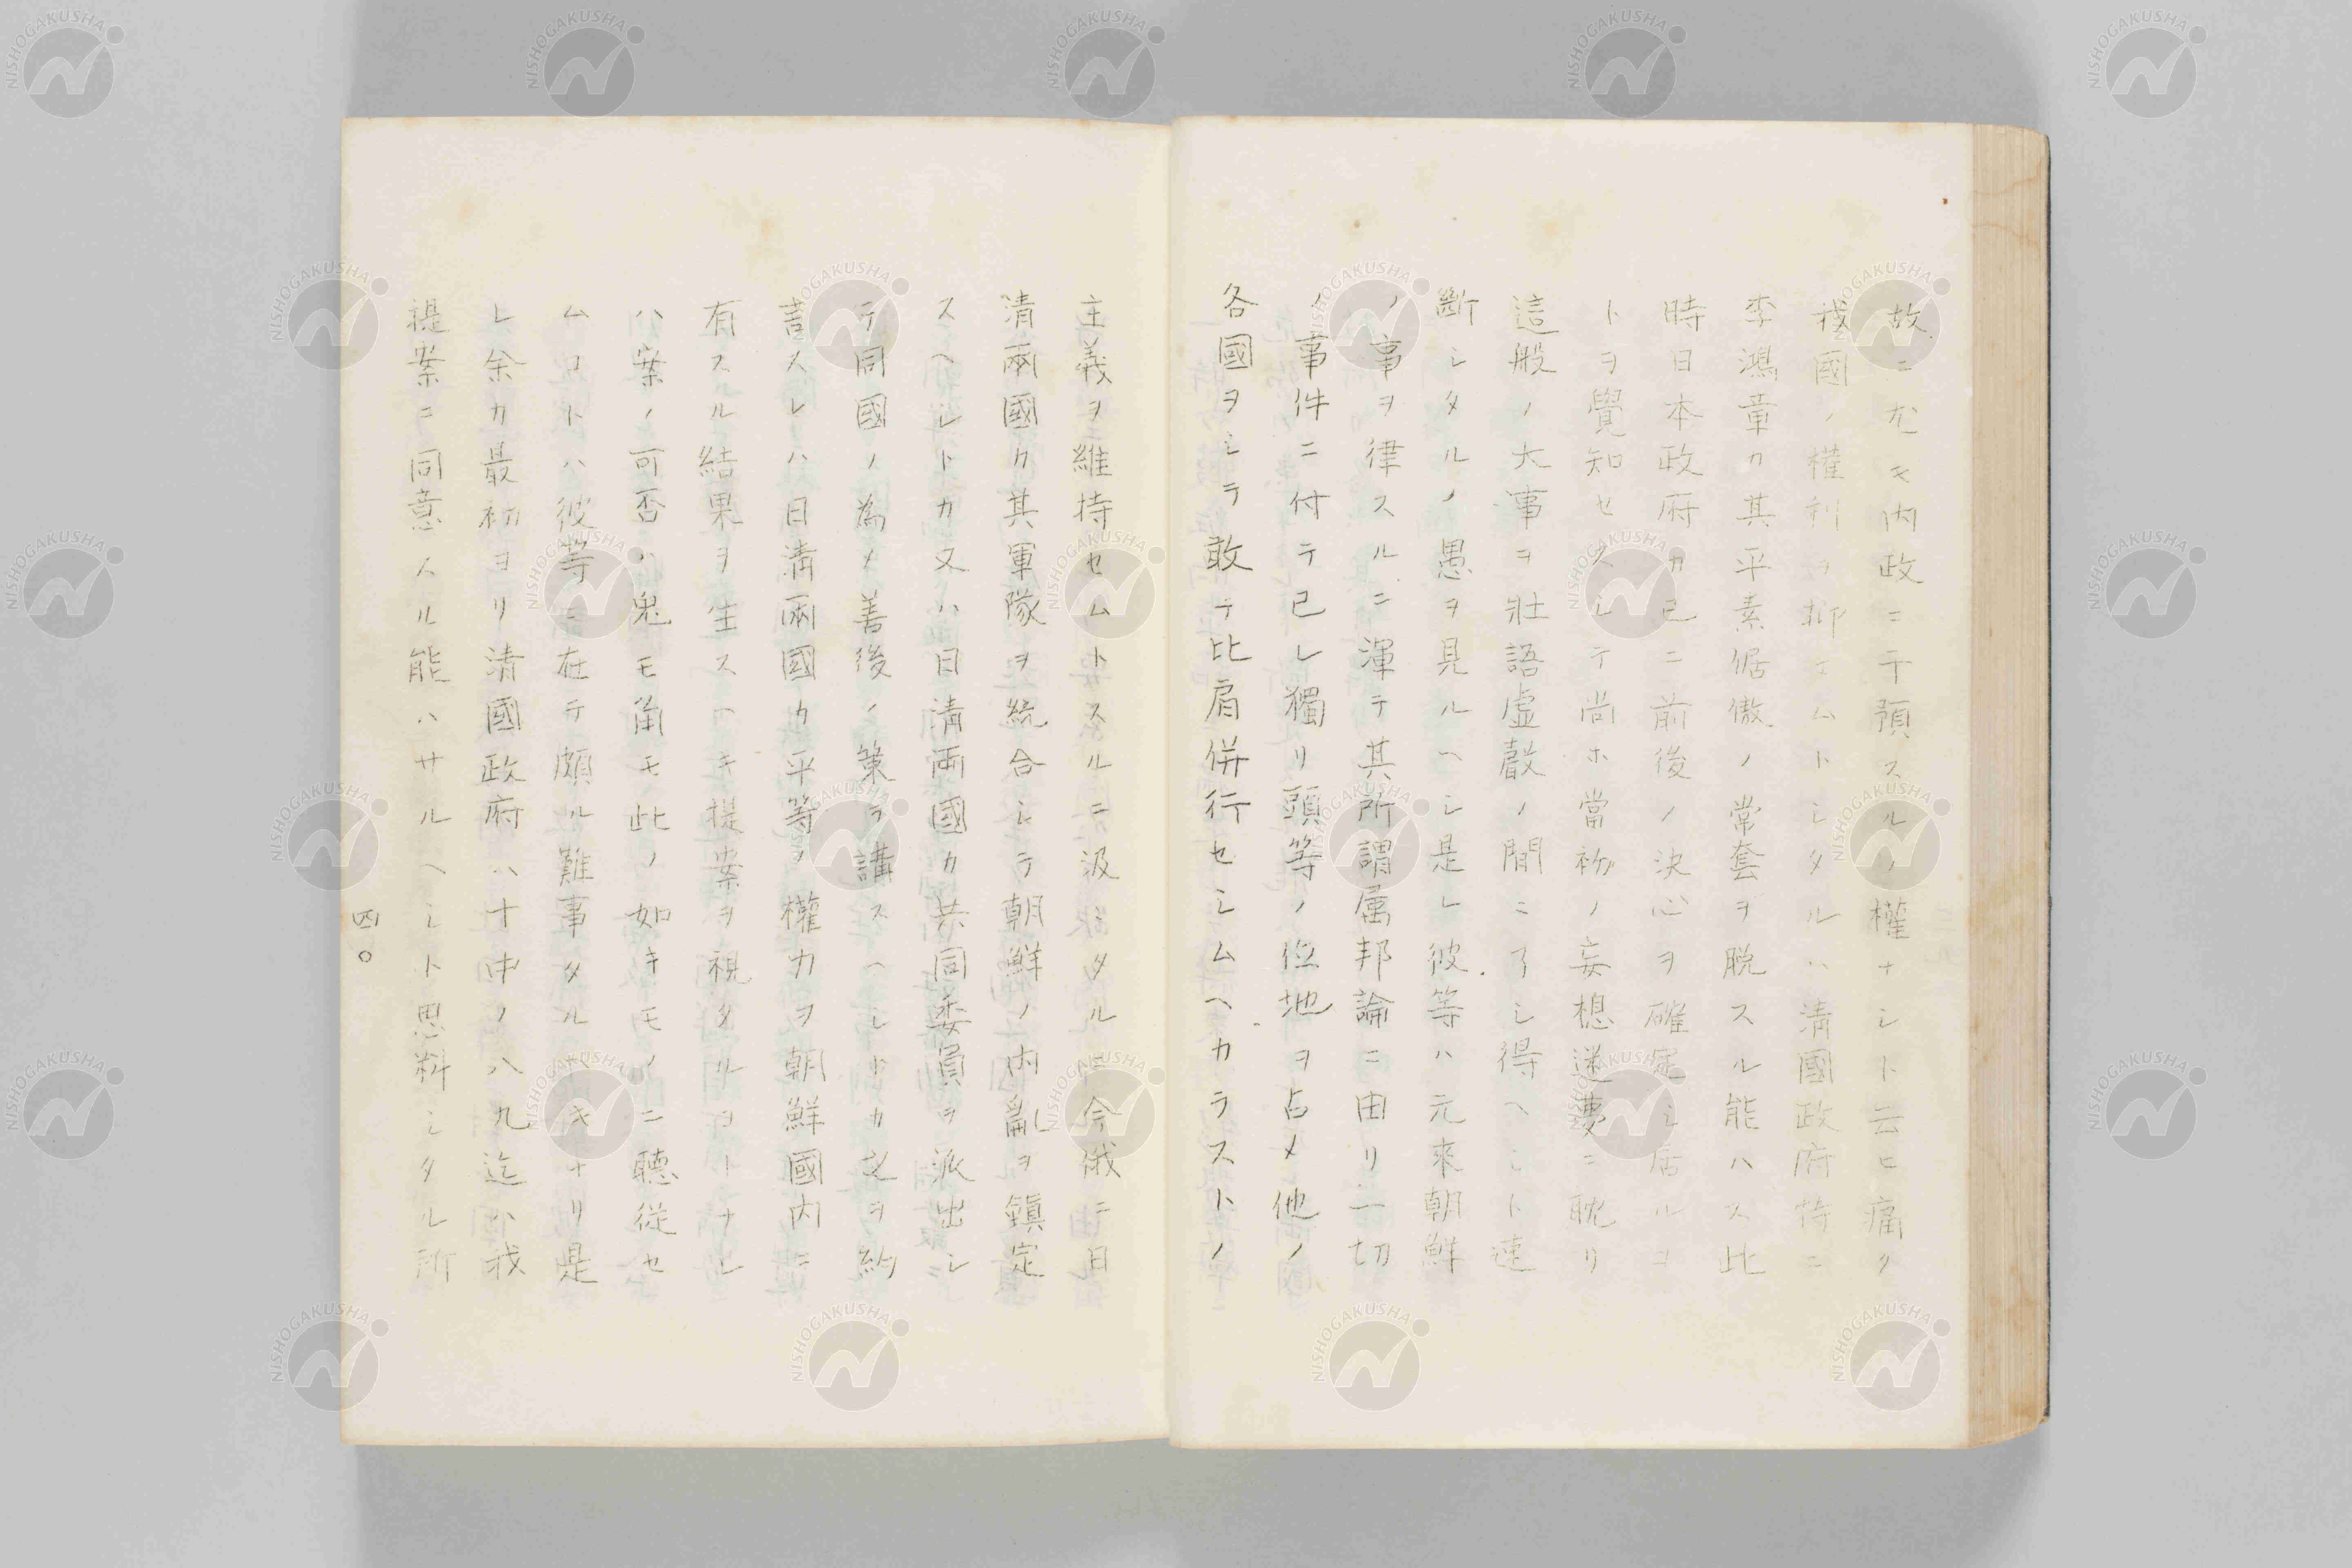 故ニ尤モ内政ニ干預スルノ權ナシト云ヒ痛ク
我國ノ權利ヲ抑エムトシタルハ清國政府特ニ
李鴻章カ其平素倨傲ノ常套ヲ脱スル能ハス此
時日本政府カ已ニ前後ノ決心ヲ確定シ居ルコ
トヲ覺知セスシテ尚ホ當初ノ妄想迷夢ニ耽リ
這般ノ大事ヲ壯語虚聲ノ間ニ了シ得ヘシト速
斷シタルノ愚ヲ見ルヘシ是レ彼等ハ元來朝鮮
ノ事ヲ律スルニ渾テ其所謂属邦論ニ由リ一切
ノ事件ニ付テ已レ獨リ頭等ノ位地ヲ占メ他ノ
各國ヲシテ敢テ比肩併行セシムヘカラストノ
主義ヲ維持セムトスルニ汲々タル日今俄ニ日
清兩國カ其軍隊ヲ統合シテ朝鮮ノ内亂ヲ鎭定
スヘシトカ又ハ日清兩國カ共同委員ヲ派出シ
テ同國ノ為メ善後ノ策ヲ講スヘシトカ之ヲ約
言スレハ日清兩國カ平等ノ權力ヲ朝鮮國内ニ
有スル結果ヲ生スヘキ提案ヲ視タルコトナレ
ハ案ノ可否ハ兎モ角モ此ノ如キモノニ聽從セ
ムコトハ彼等ニ在テ頗ル難事タルヘキナリ是
レ余カ最初ヨリ清國政府ハ十中ノ八九迄ハ我
提案ニ同意スル能ハサルヘシト思料シタル所
四〇
NISHOGAKUSHA